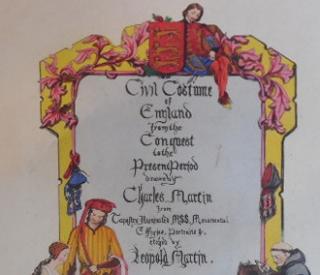 Civil Costume
of
England
from the
Conquest
to the
Present Period
drawn by
Charles Martin
from
Tapestry, Illuminated MSS, Monumental
Effigies, Portraits &c.
etched by
Leopold Martin.